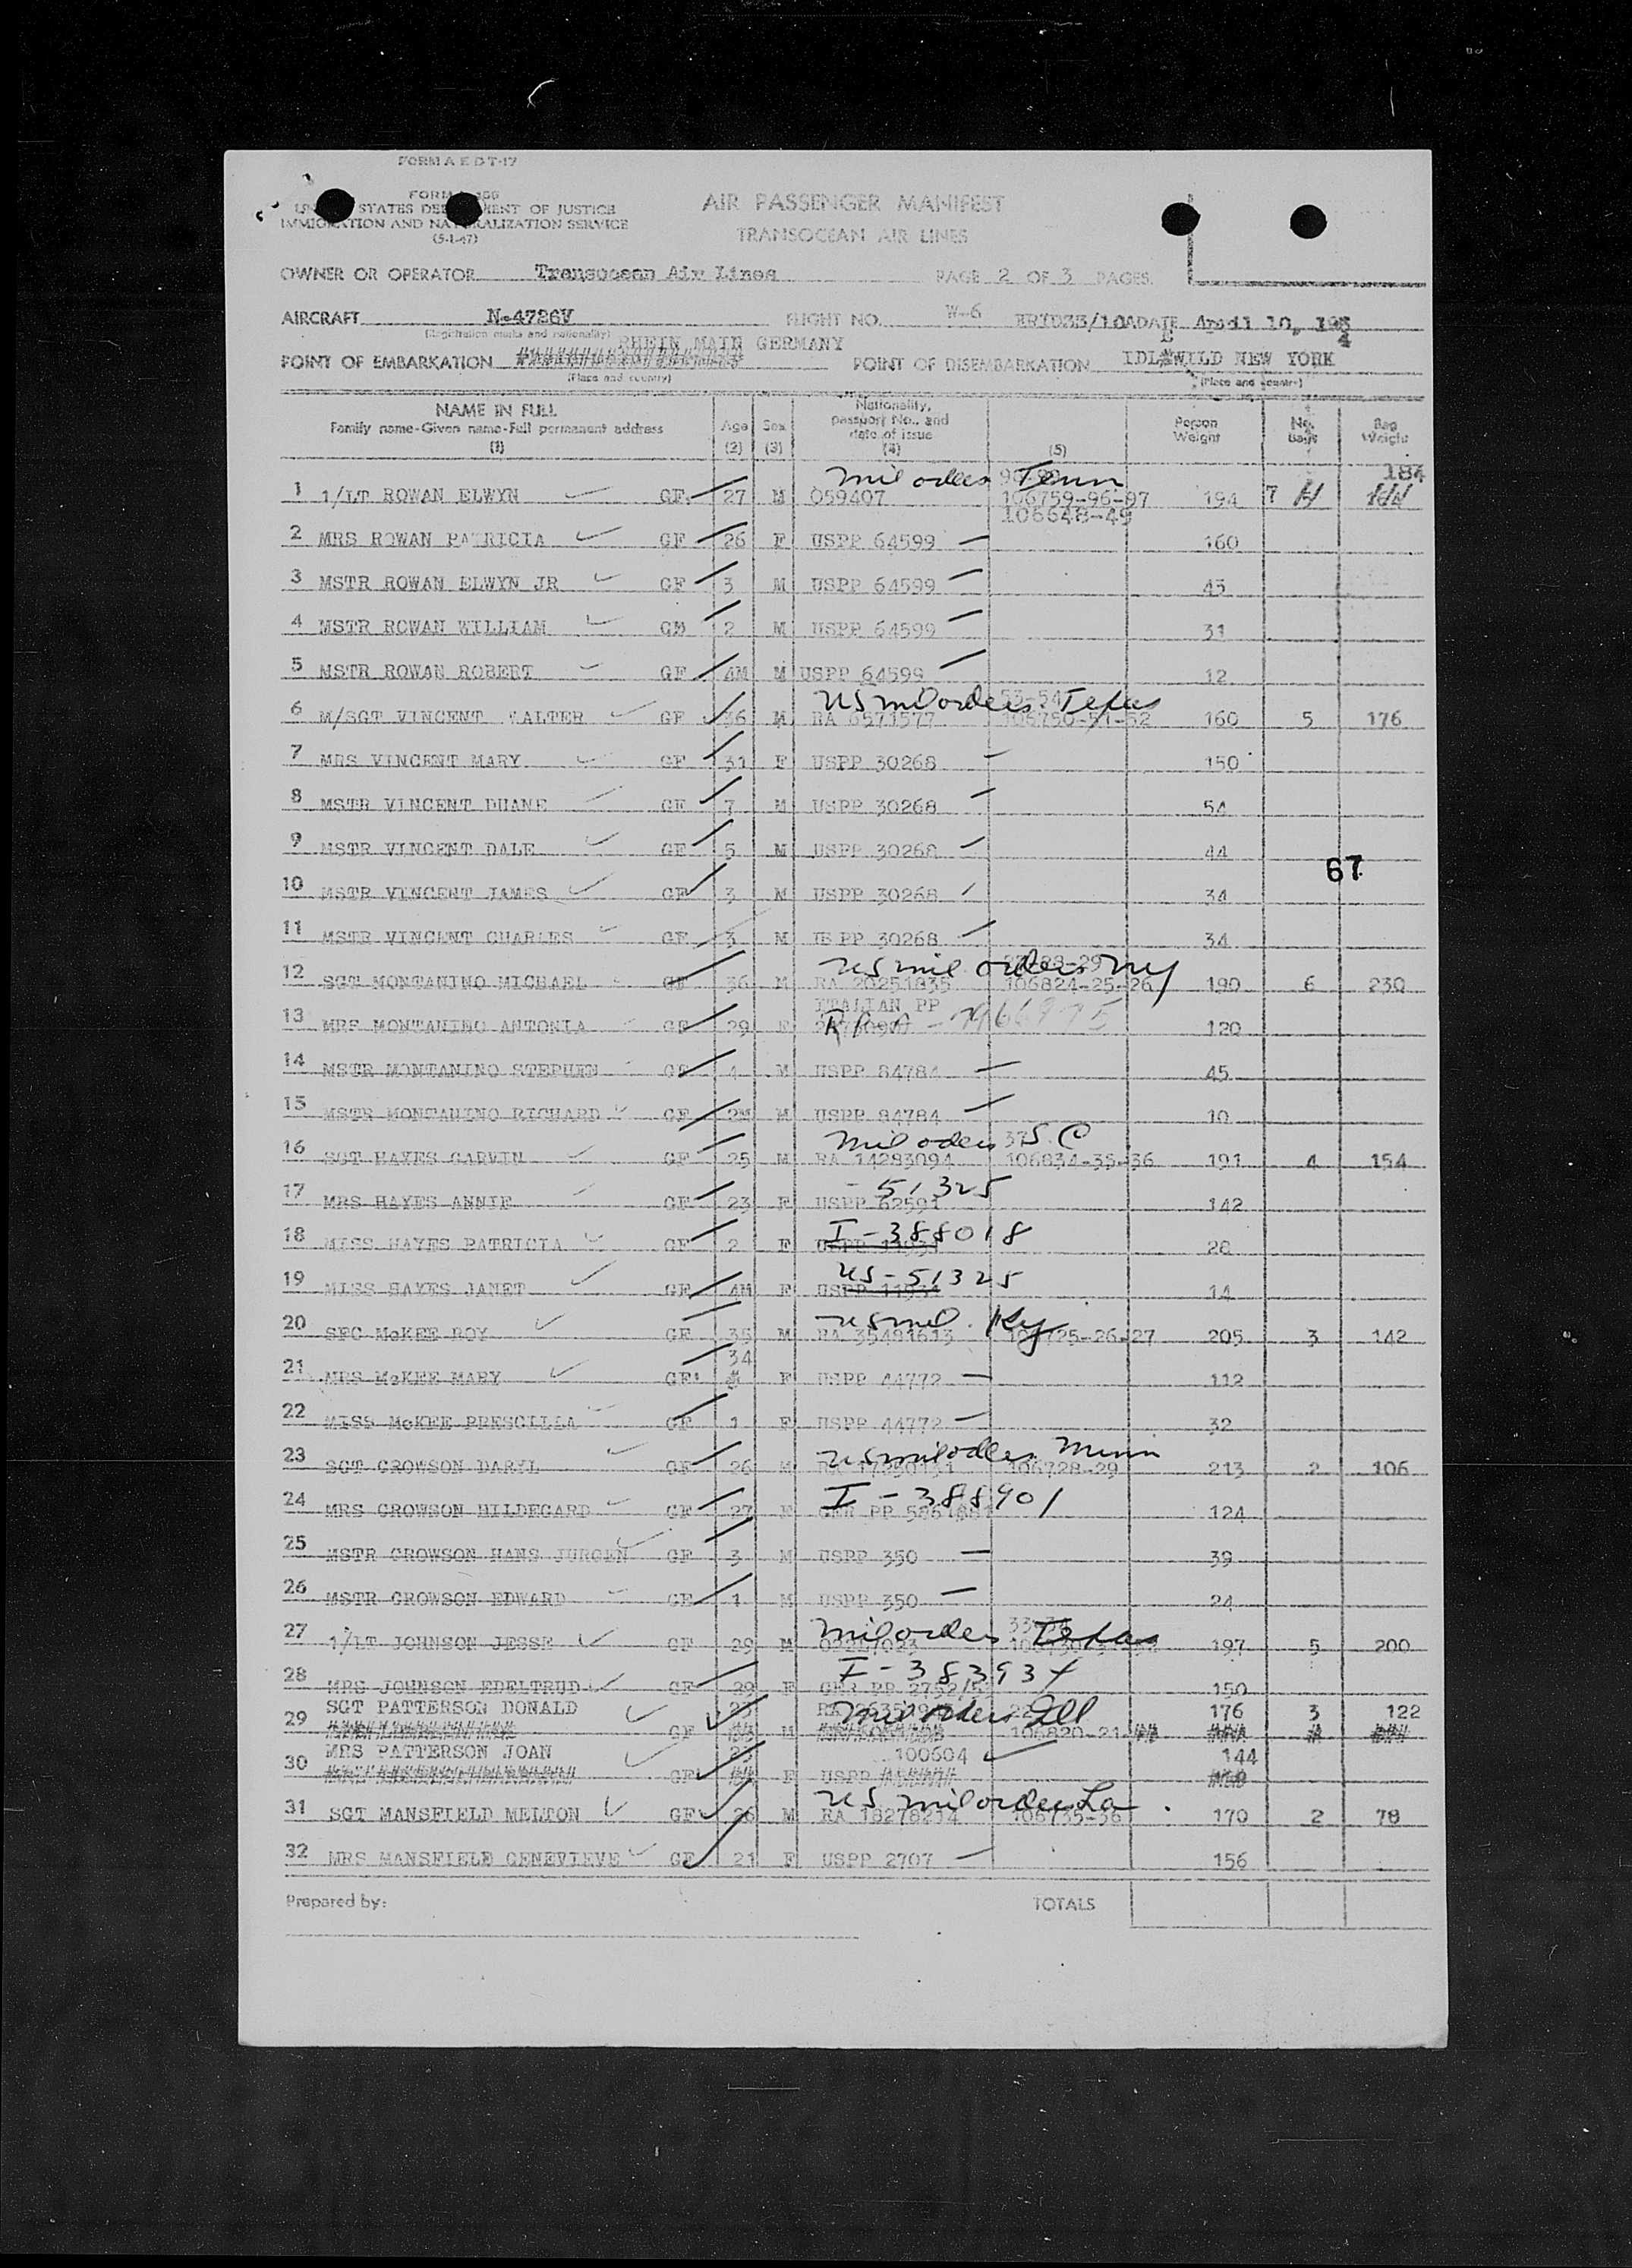 FORM A E D T-17
FORM
STATES DEPARTMENT OF JUSTICE
IMMIGRATION AND NATURALIZATION SERVICE
(5-1-47)
AIR PASSENGER MANIFEST
TRANSOCEAN AIR LINES
OWNER OR OPERATOR Transocean Air Lines PAGE 2 OF 3 PAGES.
AIRCRAFT N-4726V FLIGHT NO. W-6 DATE April 10, 1954
(Registration marks and nationality)
POINT OF EMBARKATION RHEIN MAIN GERMANY POINT OF DISEMBARKATION IDLEWILD NEW YORK
(Place and country) (Place and country)
NAME IN FULL
Family name-Given name-Full permanent address
(1)
Age
(2)
Sex
(3)
Nationality,
passport No., and
date of issue
(4)
(5)
Person
Weight
No.
Bags
Bag
Weight
mil orders Tenn 184
1 1/LT ROWAN ELWYN GF 27 M O59407 106759-96-97 194 7
106648-49
2 MRS ROWAN PATRICIA GF 26 F USPP 64599 160
3 MSTR ROWAN ELWYN JR GF 3 M USPP 64599 43
4 MSTR ROWAN WILLIAM GM 2 M USPP 64599 31
5 MSTR ROWAN ROBERT GF 4M M USPP 64599 12
US mil orders Texas 53-54
6 M/SGT VINCENT WALTER GF 36 M RA 6571577 106750-51-52 160 5 176
7 MRS VINCENT MARY GF 31 F USPP 30268 150
8 MSTR VINCENT DUANE GF 7 M USPP 30268 54
9 MSTR VINCENT DALE GF 5 M USPP 30268 44
67
10 MSTR VINCENT JAMES GF 3 M USPP 30268 34
11 MSTR VINCENT CHARLES GF 3 M USPP 30268 34
US mil orders NY
12 SGT MONTANINO MICHAEL GF 36 M RA 20251835 106824-25-26 190 6 230
ITALIAN PP
13 MRS MONTANINO ANTONIA GF 29 F 120
14 MSTR MONTANINO STEPHEN GF 4 M USPP 84784 45
15 MSTR MONTANINO RICHARD GF 2M M USPP 84784 10
mil orders 37 S.C
16 SGT HAYES GARVIN GF 25 M RA 14283094 106834-35-36 191 4 154
- 51325
17 MRS HAYES ANNIE GF 23 F USPP 62591 142
I - 388018
18 MISS HAYES PATRICIA GF 2 F 28
US - 51325
19 MISS HAYES JANET GF 4M F USPP 11934 14
US mil. Ky
20 SFC McKEE ROY GF 35 M RA 35491613 106725-26-27 205 3 142
34
21 MRS McKEE MARY GF F USPP 44772 112
22 MISS McKEE PRESCILLA GF 1 F USPP 44772 32
US mil orders Minn
23 SGT CROWSON DARYL GF 26 M 106728-29 213 2 106
I - 388901
24 MRS CROWSON HILDEGARD GF 27 F GER PP 124
25 MSTR CROWSON HANS JURGEN GF 3 M USPP 350 39
26 MSTR CROWSON EDWARD GF 1 M USPP 350 24
mil orders Texas
27 1/LT JOHNSON JESSE GF 29 M 197 5 200
I - 383934
28 MRS JOHNSON EDELTRUD GF 29 F GER PP 150
SGT PATTERSON DONALD 23 mil orders Ill 176 3 122
29 GF M 106820-21
MRS PATTERSON JOAN 23 100604 144
30 GF F USPP
US mil orders La.
31 SGT MANSFIELD MELTON GF 26 M RA 18278214 106735-36 170 2 78
32 MRS MANSFIELD GENEVIEVE GF 21 F USPP 2707 156
Prepared by: TOTALS